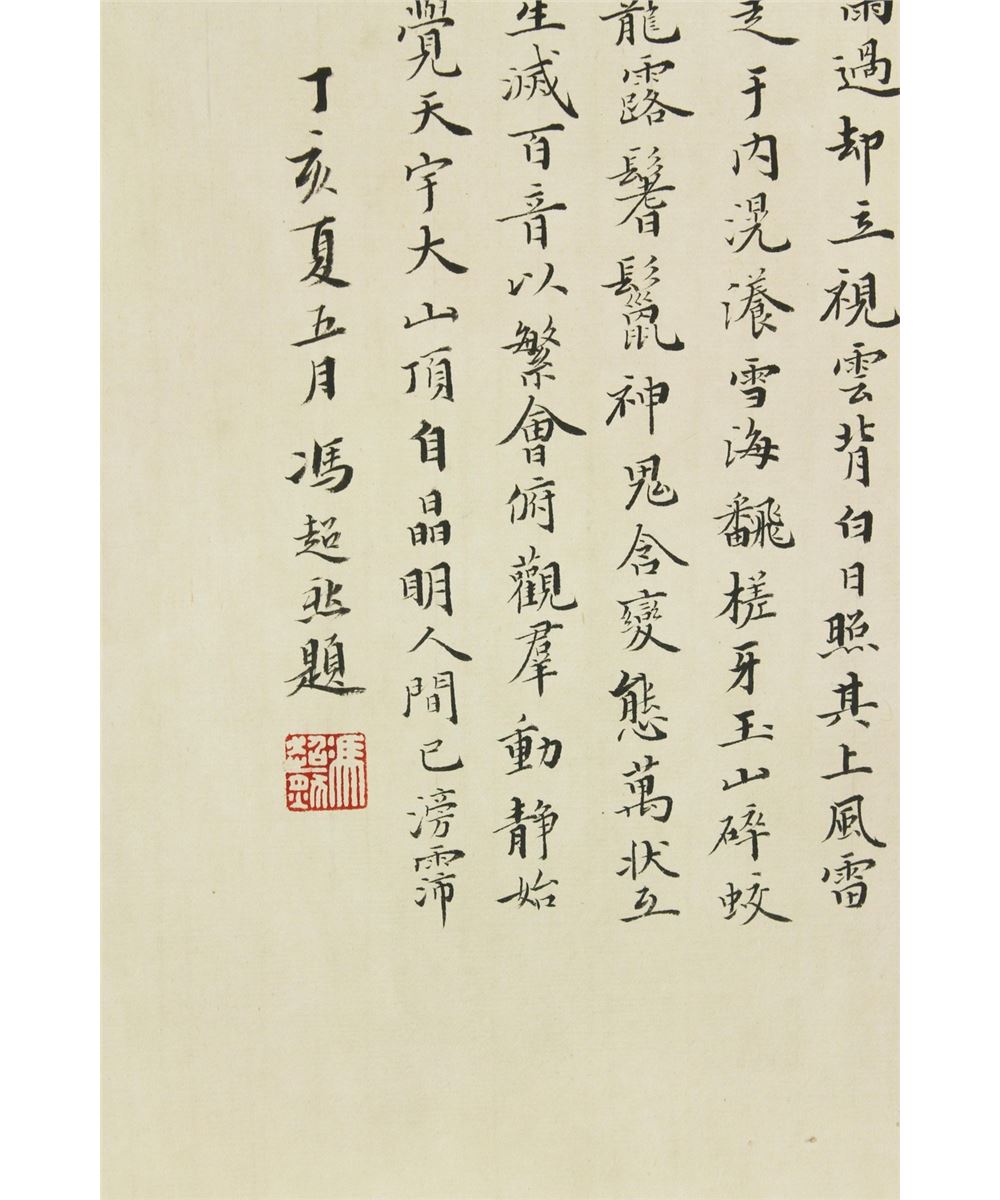 雨過却立視雲背白日照其上風雷
走于内滉瀁雪海翻槎牙玉山碎蛟
龍露鬐鬣神鬼含變態萬状互
生滅百音以繁會俯觀羣動静始
覺天宇大山頂自晶明人間已滂霈
丁亥夏五月馮超然題
馮超然